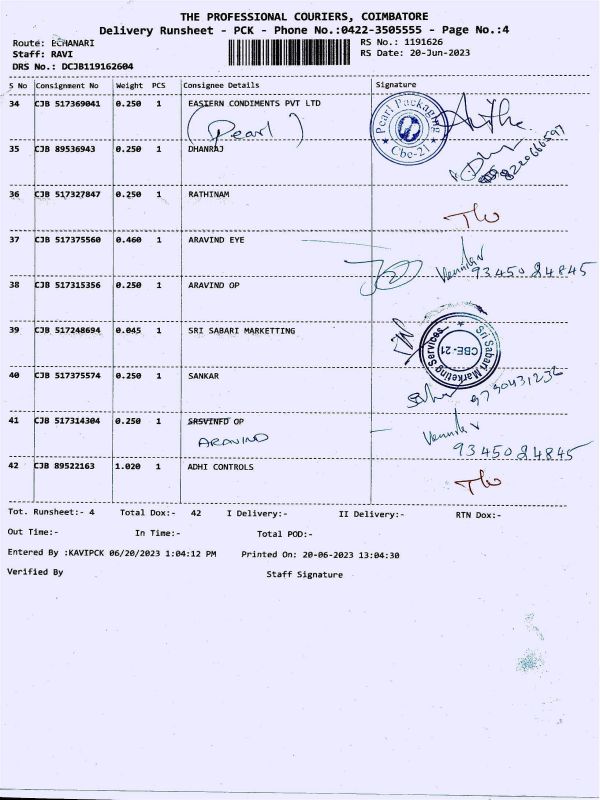 THE PROFESSIONAL COURIERS, COIMBATORE
Delivery Runsheet - PCK - Phone No.:0422-3505555 - Page No.:4
Route: ECHANARI RS No.: 1191626
Staff: RAVI RS Date: 20-Jun-2023
DRS No.: DCJB119162604
S No Consignment No Weight PCS Consignee Details Signature
34 CJB 517369041 0.250 1 EASTERN CONDIMENTS PVT LTD
(Pearl)
Pearl Packaging
Cbe-21
35 CJB 89536943 0.250 1 DHANRAJ
36 CJB 517327847 0.250 1 RATHINAM
37 CJB 517375560 0.460 1 ARAVIND EYE
9345024845
38 CJB 517315356 0.250 1 ARAVIND OP
39 CJB 517248694 0.045 1 SRI SABARI MARKETTING
Sri Sabari Marketing Services
CBE-21
40 CJB 517375574 0.250 1 SANKAR
9790431236
41 CJB 517314304 0.250 1 SRSVINFD OP
ARAVIND
9345024845
42 CJB 89522163 1.020 1 ADHI CONTROLS
Tot. Runsheet:- 4 Total Dox:- 42 I Delivery:- II Delivery:- RTN Dox:-
Out Time:- In Time:- Total POD:-
Entered By :KAVIPCK 06/20/2023 1:04:12 PM Printed On: 20-06-2023 13:04:30
Verified By Staff Signature